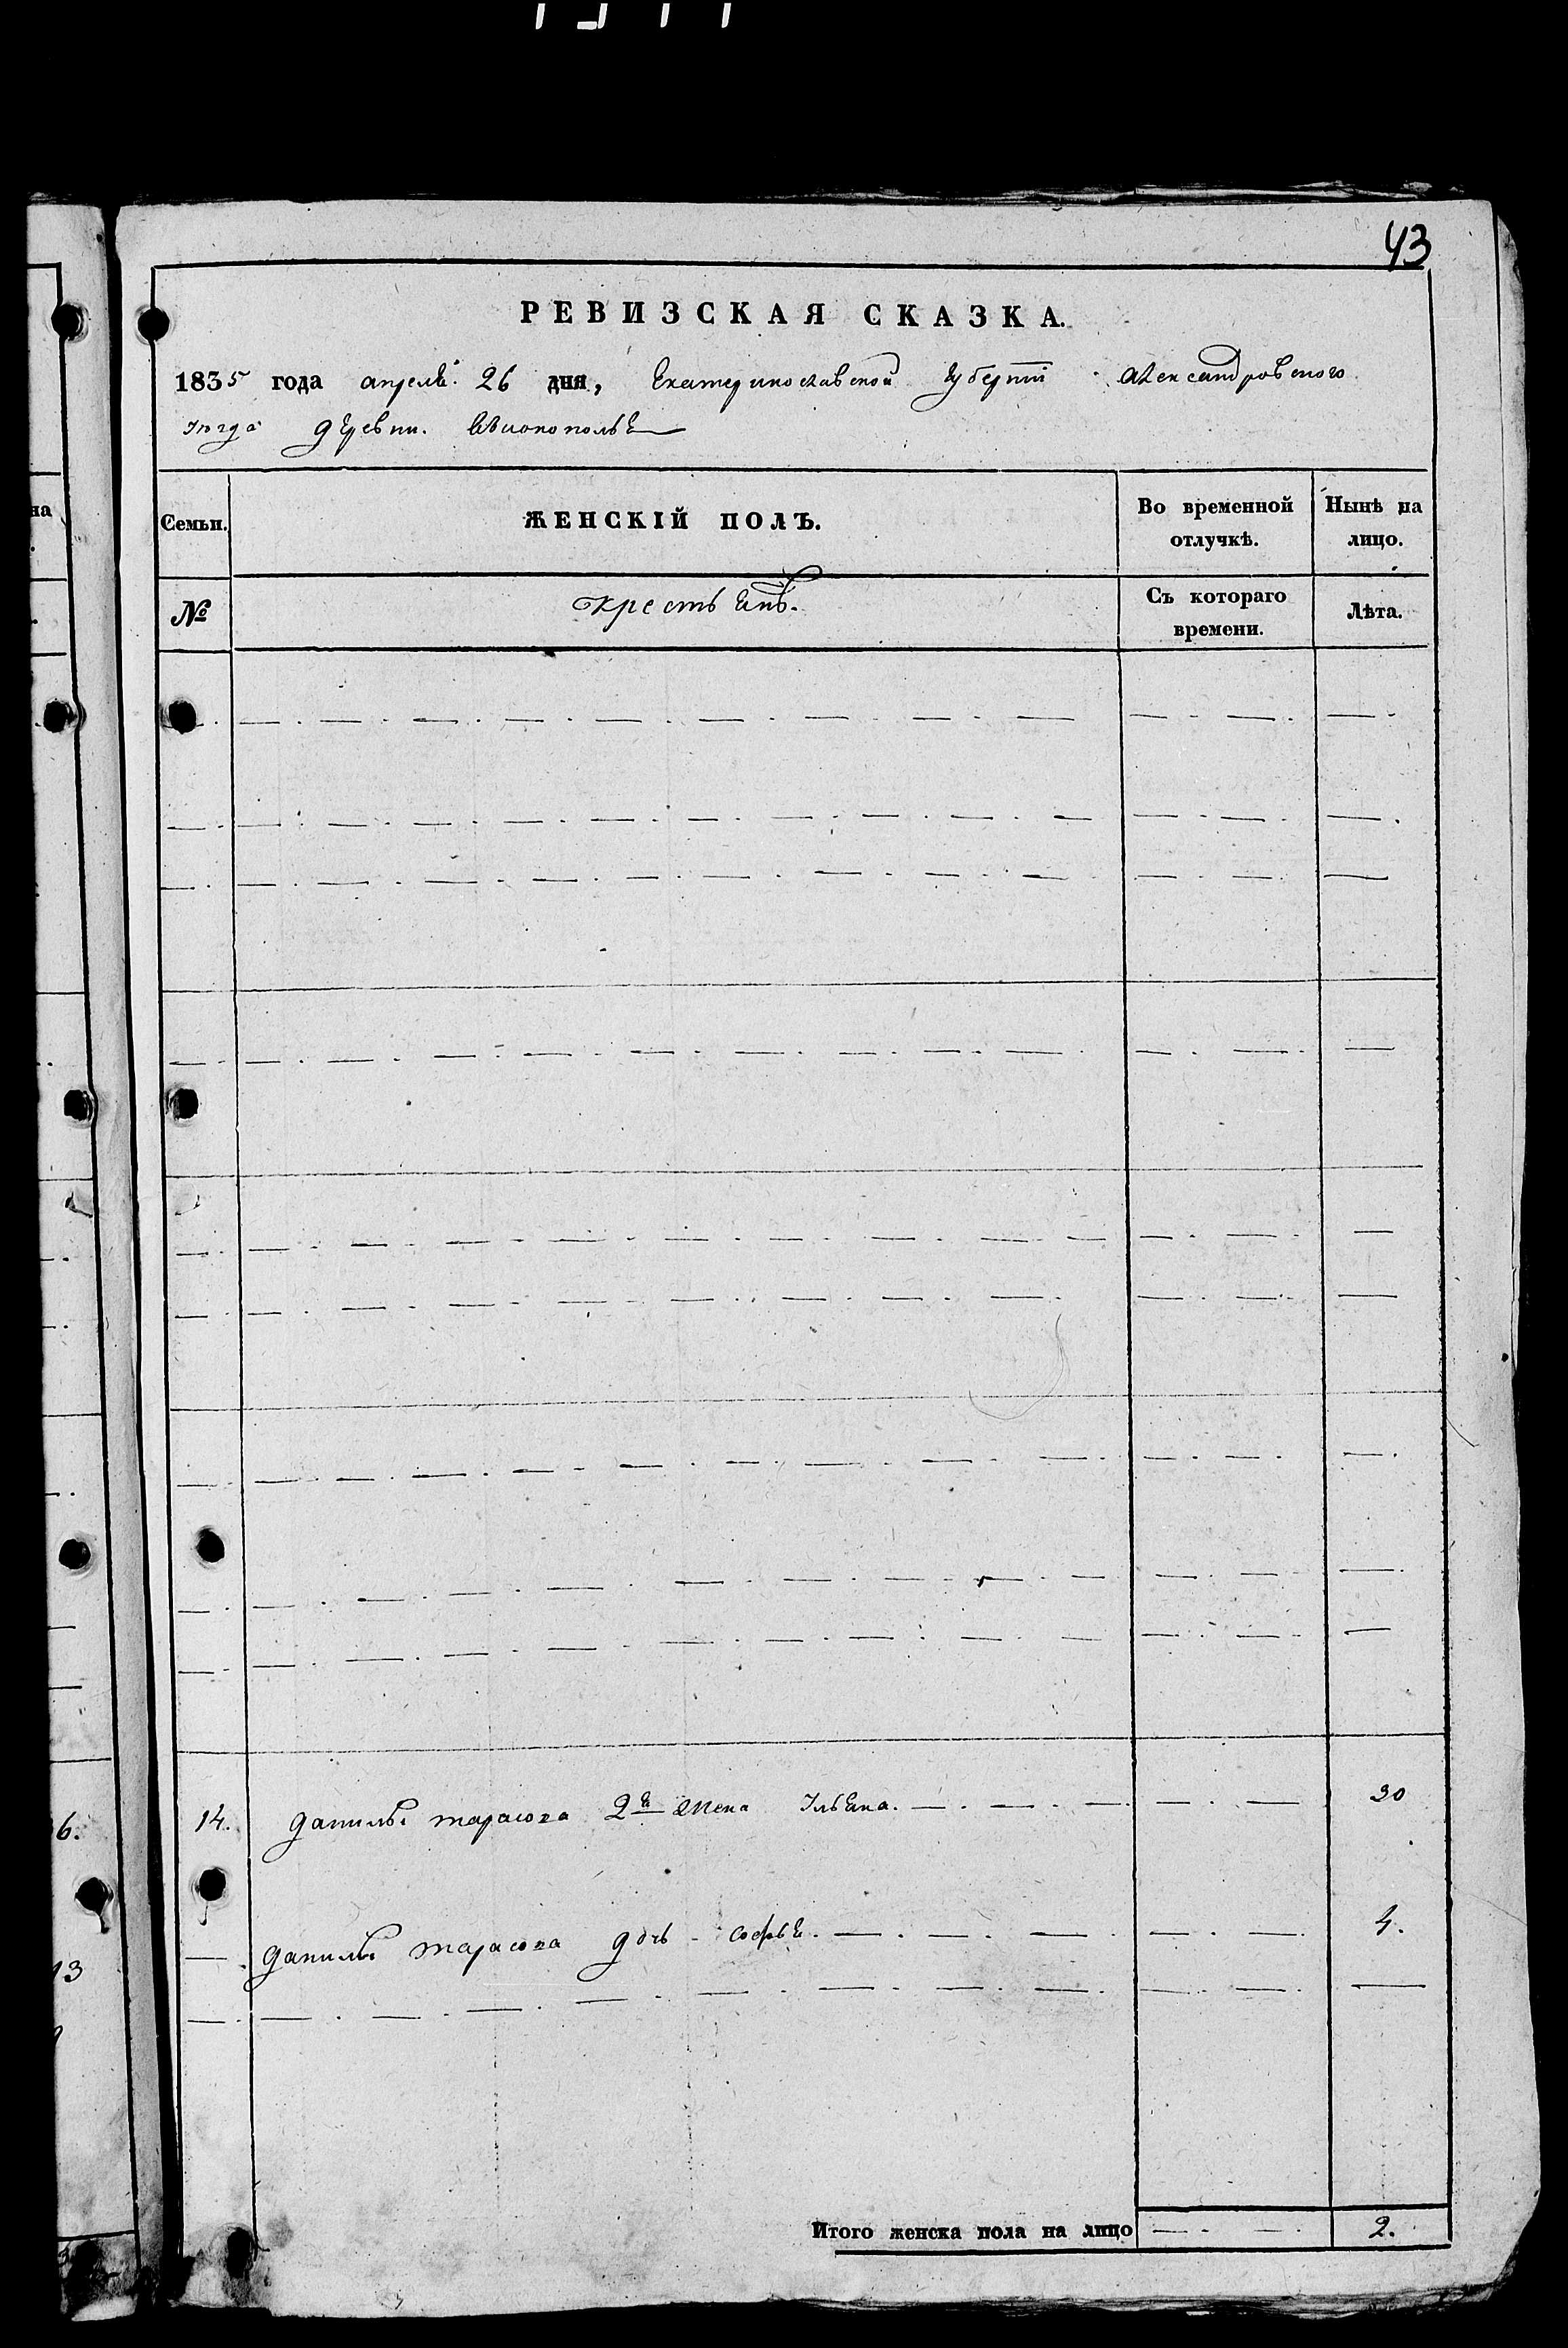 43
РЕВИЗСКАЯ СКАЗКА.
1835 года апреля 26 дня, Екатеринославской губерніи Александровского
уезда деревни
Семьи. ЖЕНСКІЙ ПОЛЪ. Во временной отлучкѣ. Нынѣ на лицо.
№ крестьянъ. Съ котораго времени. Лѣта.
14. данилы тарасова 2я жена Ульяна. 30
данилы тарасова дочь софья. 4.
Итого женска пола на лицо 2.